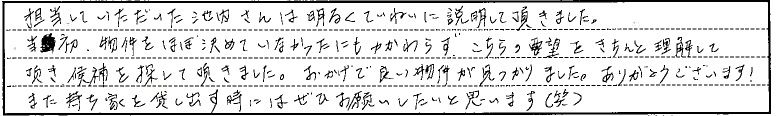 担当していただいた池内さんは明るくていねいに説明して頂きました。
当初、物件をほぼ決めていなかったにもかかわらず、こちらの要望をきちんと理解して
頂き候補を探して頂きました。おかげで良い物件が見つかりました。ありがとうございます!
また持ち家を貸し出す時にはぜひお願いしたいと思います(笑)